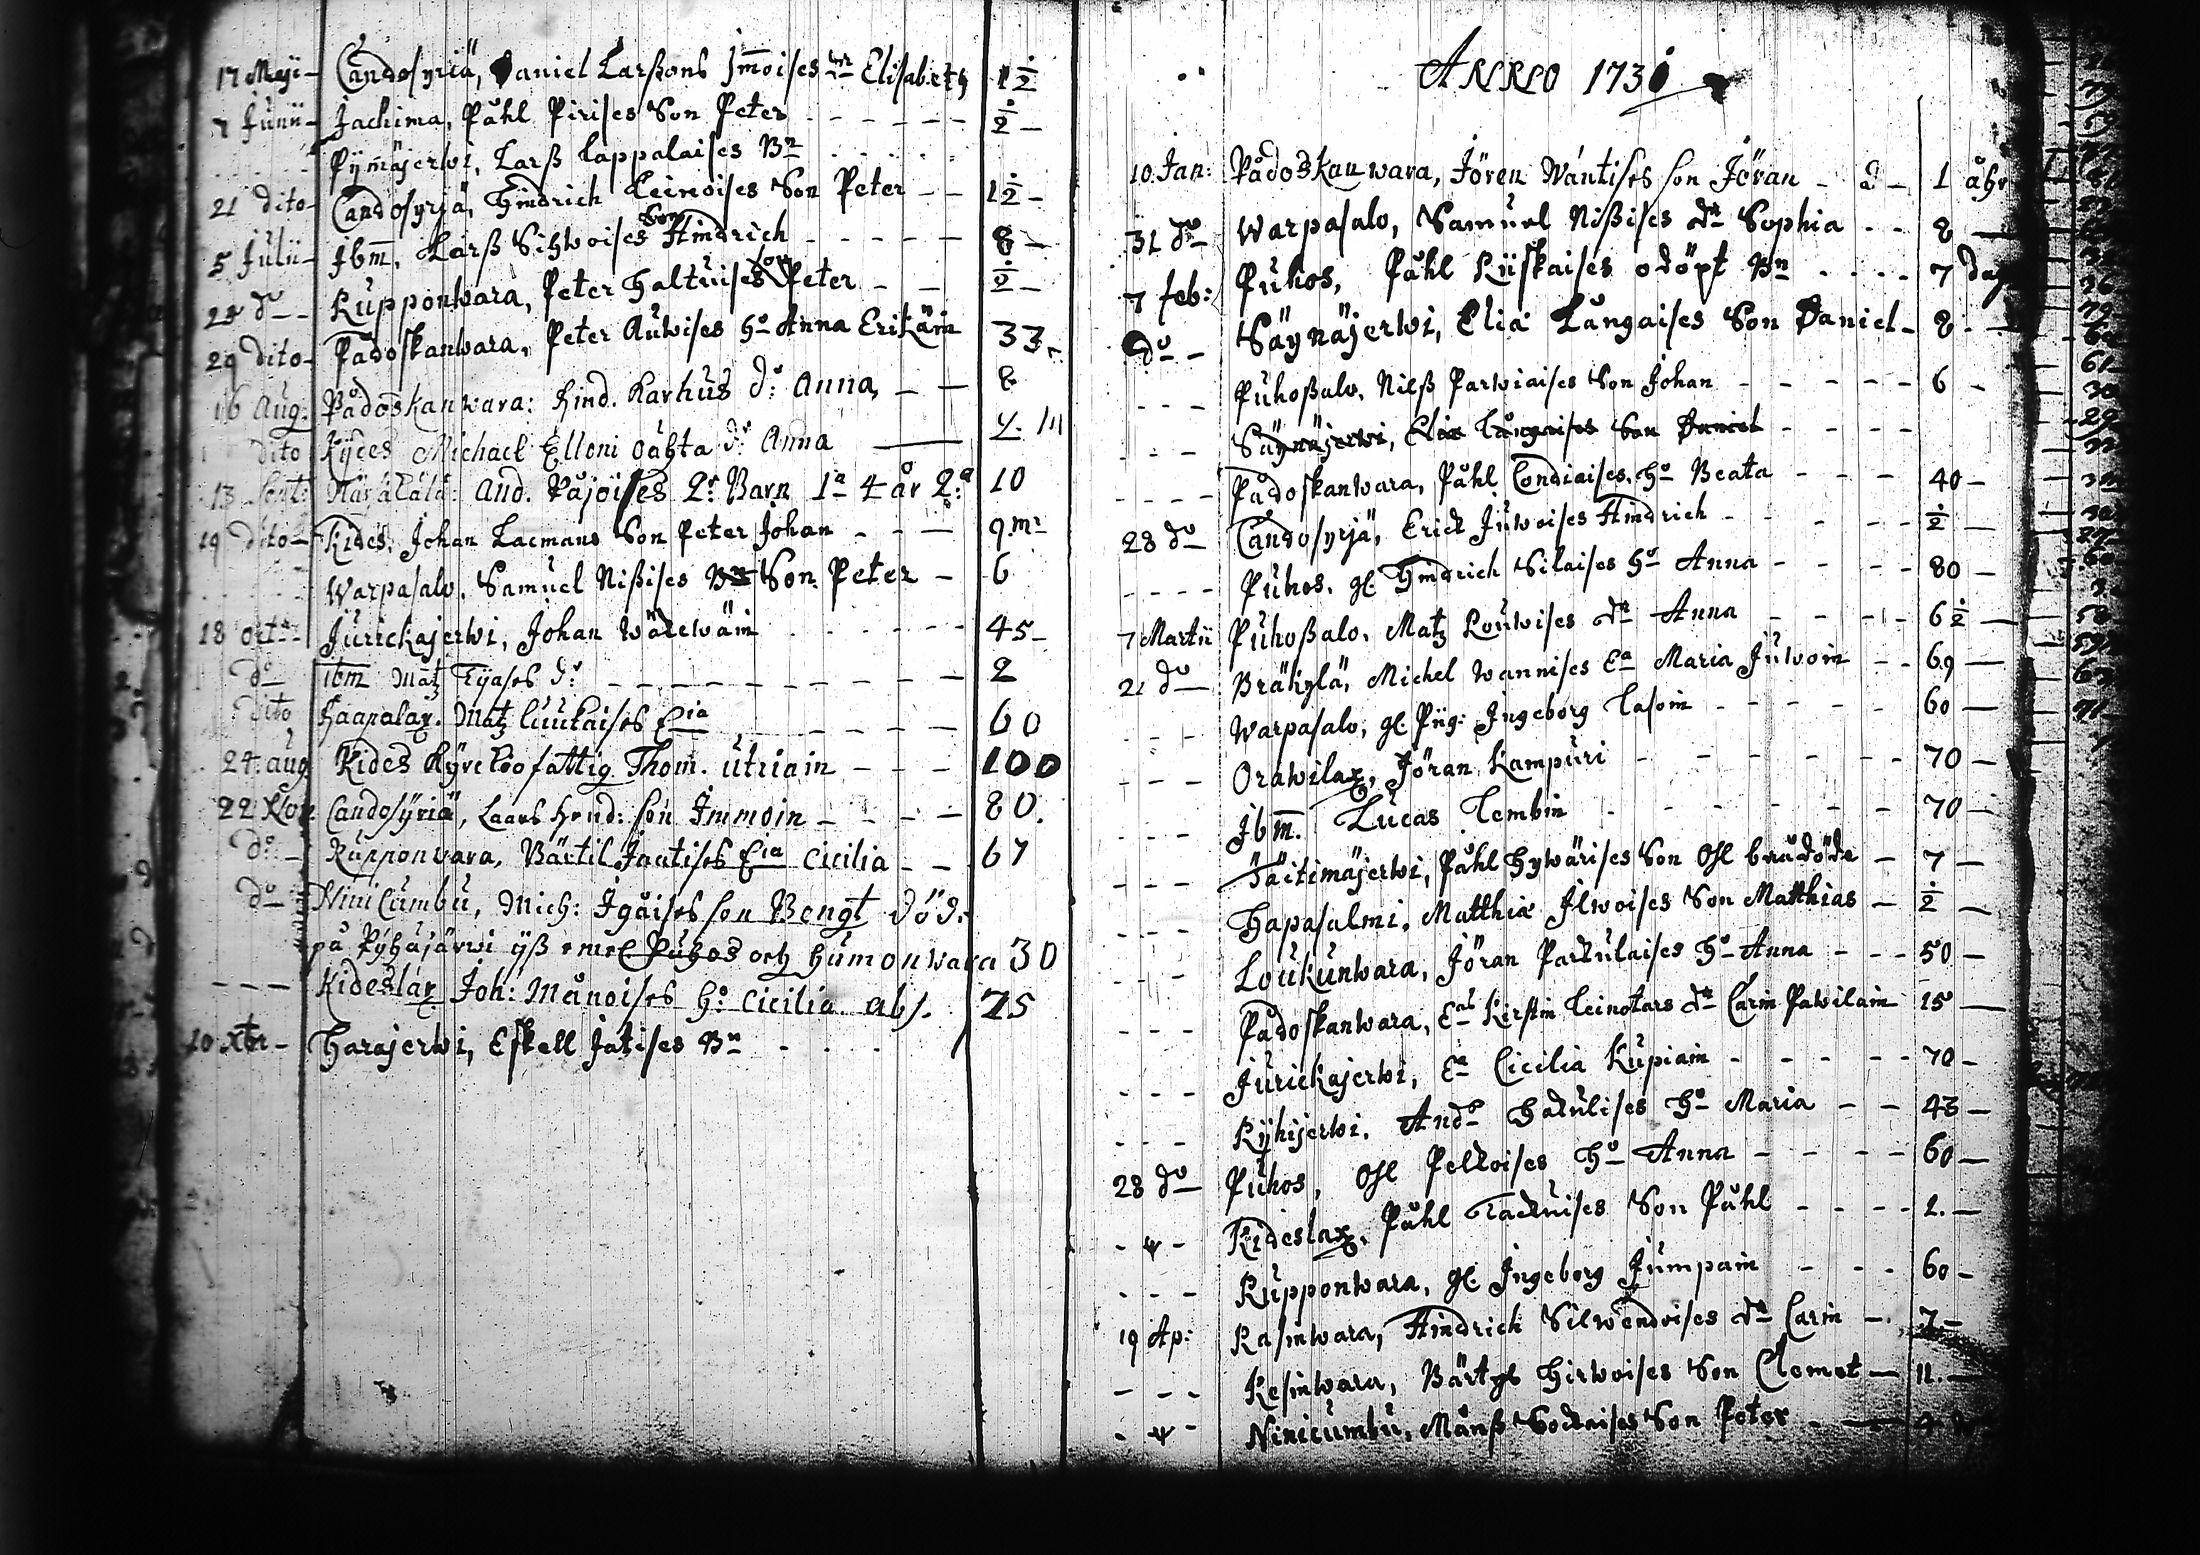 17 Maji - Candosyriä, Daniel Larßons Jmoises dr Elisabeth 1½
7 Junii - Jachima, Påhl Pirises Son Peter - - - - - - ½ -
Pÿmäjerwi, Larß Lappalaises Bn
21 dito - Candosyrjä, Hindrich Leinoises Son Peter - - 1½ -
5 Julii - Jbm. Larß Sihwoises Son Hindrich - - - - - 8 -
do - Rupponwara, Peter Haltuises Son Peter - - ½ -
29 dito - Pådoskanwara, Peter Auwises Ho Anna Erikäin 33
16 Aug: Pådoskanwara: Hind. Karhus dr Anna - - 8
dito Kÿdes Michael Elloni oähta dr Anna
13 And. Påjoises 2r Barn 1a 4 år 2a 10
19 dito - Kides, Johan Lacmans Son Peter Johan - - - 9 mr
Warpasalo, Samuel Nißises Bn Son Peter - 6
18 octr Jurickajerwi, Johan Wäkewäin 45 -
do ibm Matz Tÿases dr - - - - - - - - - - 2
dito Haapalax. Matz luukaises Eia - - - - - 60
24. aug Kides Kÿrckiofattig Thom. utriain - - - 100
22 Candosÿriä, Laars Hend: son Immoin - - - - 80.
do - Rupponvara, Bärtil Jaatises Eia Cicilia - - 67
do - Ninicumbu, Mich: Igåises son Bengt död.
på Pÿhäjärwi ÿß emel Puhos och Humonwara 30
- - - Kideslax Joh: Månoises Ho Cicilia abs. 75
10 Xbr - Harajerwi, Eskell Jatises Bn - - -
ANNO 1731
10 Jan: Pådoskanwara, Jören Wäntises son Jöran - d - 1 åhr
31 do - Warpasalo, Samuel Nißises dr Sophia - - 8 -
7 feb: Puhos, Påhl Kiiskaises odöpt Bn - - - - 7 dag
do - Säynäjerwi, Elia Långaises Son Daniel - 8 - -
- - - Puhoßalo, Nilß Parwiaises Son Johan - - - - - 6 -
- - - Säynäjerwi, Elia Långaises Son Daniel - - - -
- - - - Pådoskanwara, Påhl Condiaises Ho Beata - - - 40 -
28 do - Candosyrjä, Erick Juwoises Hindrich - - - - - ½ -
- - - - Puhos. gl. Hindrich Silaises Ho Anna - - - - 80 -
7 Martii Puhoßalo. Matz Louwises dr Anna - - - - 6½ -
21 do - Bräkylä, Michel Wannises Ea Maria Juwoin - - 69 -
- - - Warpasalo, gl. Piig: Ingeborg Tasoin - - - - - 60 -
- - - Orawilax, Jöran Kampuri - - - - - - 70 -
- - - Jbm. Lucas Tembin - - - - - - - 70 -
- - - Täitimäjerwi, Påhl Hywärises Son Ohl brådöde - 7 -
- - - Hapasalmi, Matthiæ Ilwoises Son Matthias - ½ -
- - Loukunwara, Jöran Parkulaises Ho Anna - - - 50 -
- - - Pådoskanwara, Kirstin Leinotars dr Carin Pawilain 15 -
- - - Jurickajerwi, Ea Cicilia Kupiain - - - - - 70 -
- - - Rÿhijerwi, Ando Hakulises Ho Maria - - - 43 -
28 do - Puhos, Ohl Pelkoises Ho Anna - - - - - 60 -
Kideslax, Påhl Tackuises Son Påhl - - - - 2. -
- - - Rupponwara, gl. Ingeborg Jumpain - - - 60 -
19 Ap: Rasinwara, Hindrich Silwendoises dr Carin - 7 -
- - - Kesinwara, Bärtyl Hirwoises Son Clemet - 11. -
Ninicumbu, Månß Sockaises Son Peter - -